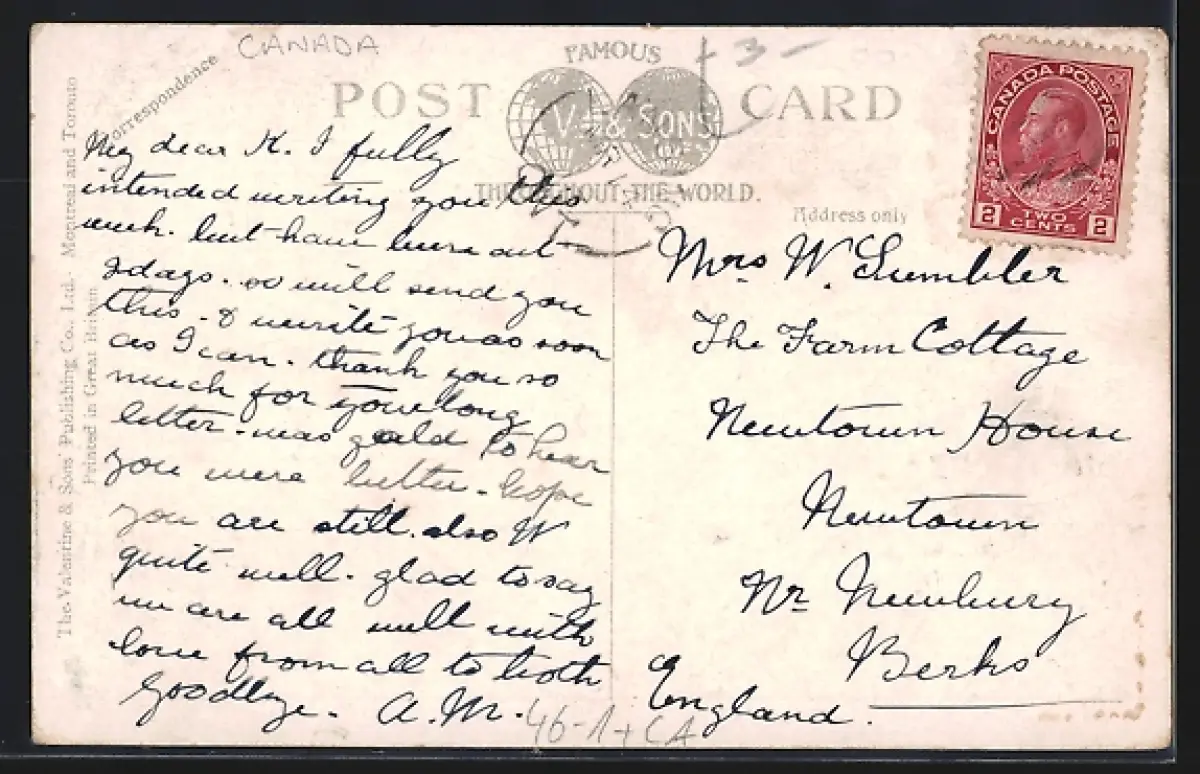 CANADA
+3-
FAMOUS
POST CARD
V. & SONS
THROUGHOUT THE WORLD.
Correspondence
Address only
My dear K. I fully
intended writing you this
week. but have been out
2 days. so will send you
this. & write you as soon
as I can. thank you so
much for your long
letter. was gald to hear
you were better. hope
you are still. also W
quite well. glad to say
we are all well with
love from all to both
Goodbye. A.M.
CANADA POSTAGE
2 TWO CENTS 2
Mrs W.
The Farm Cottage
Newtown House
Newtown
Nr Newbury
Berks
England.
46-1+CA
The Valentine & Sons' Publishing Co., Ltd. Montreal and Toronto
Printed in Great Britain